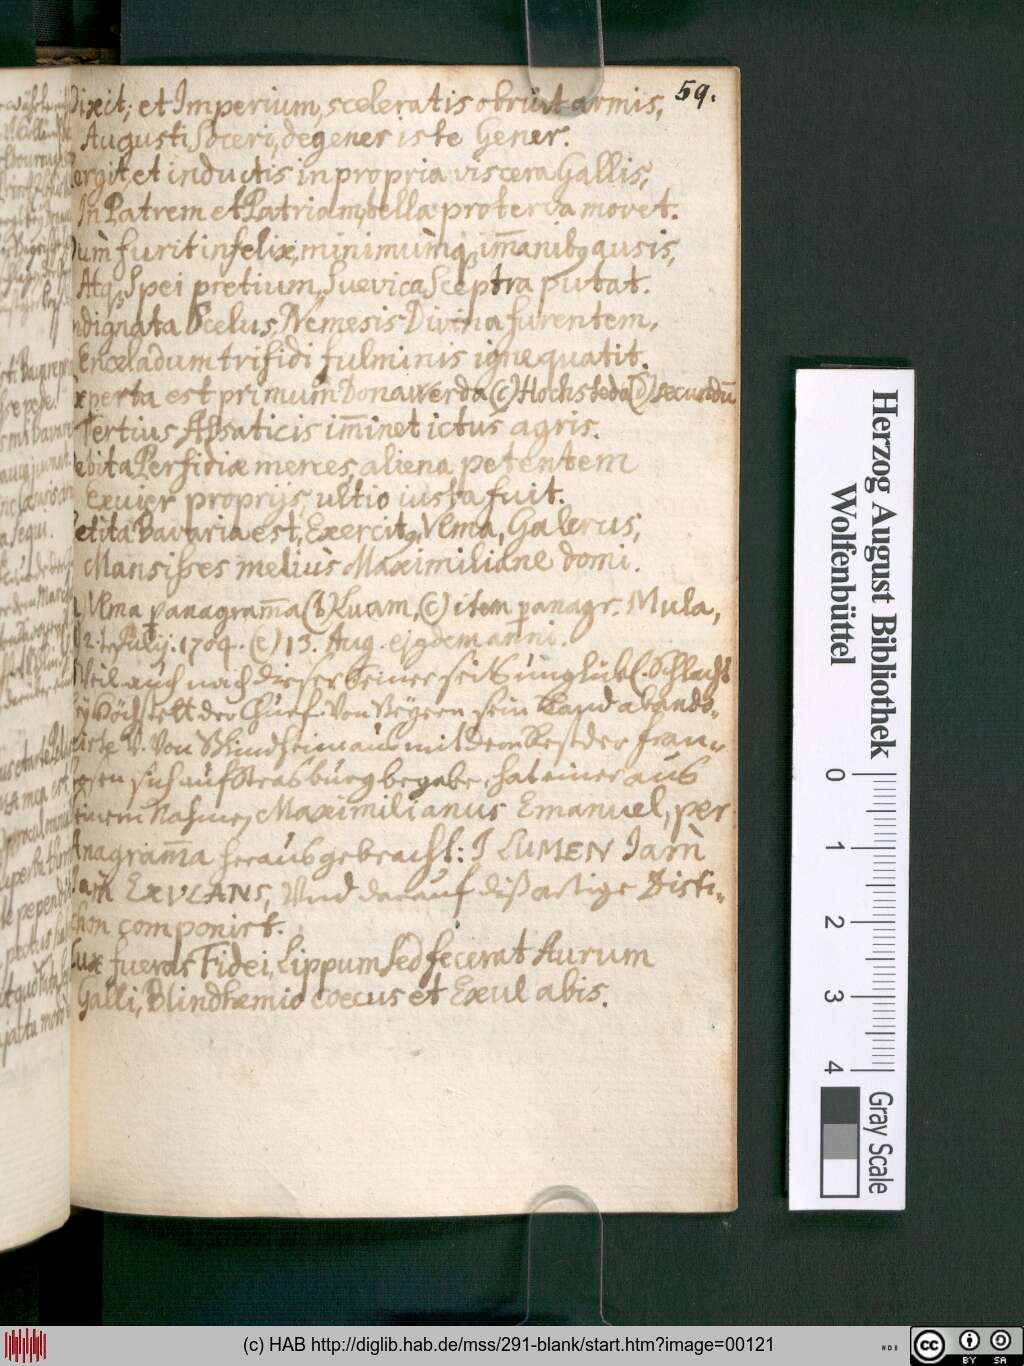 59.
Dixit, et Imperium, sceleratis obruit armis,
Augusti Soceri, degener iste Gener.
ergit, et inductis in propria viscera Gallis,
In Patrem et Patriam, bella proterva movet.
Dum furit infelix, minimumq, im̄anibq ausis,
Atq, Spei pretium, Suevica Sceptra putat.
ndignata Scelus, Nemesis Divina furentem,
Enceladum trifidi fulminis igne quatit.
xperta est primum Donawerda (c) Hochsteda (D) secundū
Tertius Alsaticis im̄inet ictus agris.
ebita Perfidiæ merces, aliena petentem
Exuier proprijs, ultio iusta fuit.
etita Bavaria est, Exercitq, Vlma, Galerus,
Mansisses melius Maximiliane domi.
Vlma p anagram̄a (b) Luam, (c) item p anagr. Mula,
2. Julij. 1704. (e) 13. Aug. ejqdem anni.
Weil auch nach dieser seiner seits unglükl. Schlacht
bey Höchstett der Churf. von Beyern sein Land abando-
nirte v. von Blindheim aus mit dem Rest der Fran-
tzosen sich auf Strasburg begabe, hat einer aus
seinem Nahmen, Maximilianus Emanuel, per
Anagram̄a herausgebracht: I LUMEN Iam
Iam EXVLANS, Und darauf diß artige Disti-
chon componirt.
Lux fueras Fidei, Lippum sed fecerat Aurum
Galli, Blindhemio coecus et Exul abis.
Herzog August Bibliothek
Wolfenbüttel
0 1 2 3 4
Gray Scale
(c) HAB http://diglib.hab.de/mss/291-blank/start.htm?image=00121
WDB
cc BY SA